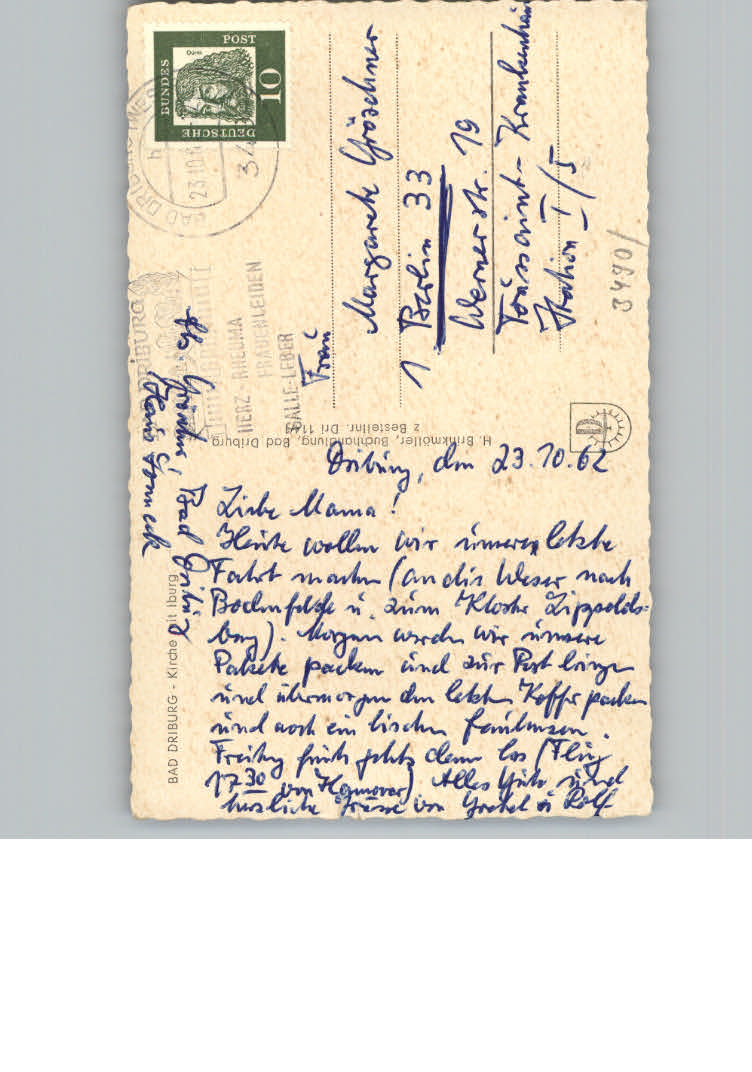 DEUTSCHE BUNDESPOST
10
BAD DRIBURG
23.10.6
HERZ-RHEUMA
FRAUENLEIDEN
GALLE-LEBER
Frau
Margarete Gröschner
1 Berlin 33
Wernerstr. 19
Toussaint-Krankenhaus
Station I/5
8490/
H. Brinkmöller, Buchhandlung, Bad Driburg
z Bestellnr. Dri 114
BAD DRIBURG - Kirche mit Iburg
Abs. Bad Driburg
Haus
Driburg, den 23.10.62
Liebe Mama!
Heute wollen wir unsere letzte
Fahrt machen (an die Weser nach
Bodenfelde u. zum Kloster Lippolds-
berg). Morgen werden wir unsere
Pakete packen und zur Post bringen
und übermorgen den letzten Koffer packen
und noch ein bischen faulenzen.
Freitag früh geht's dann los (Flug
17.30 von Hannover) Alles Gute und
herzliche Grüsse von Gretel u Rolf